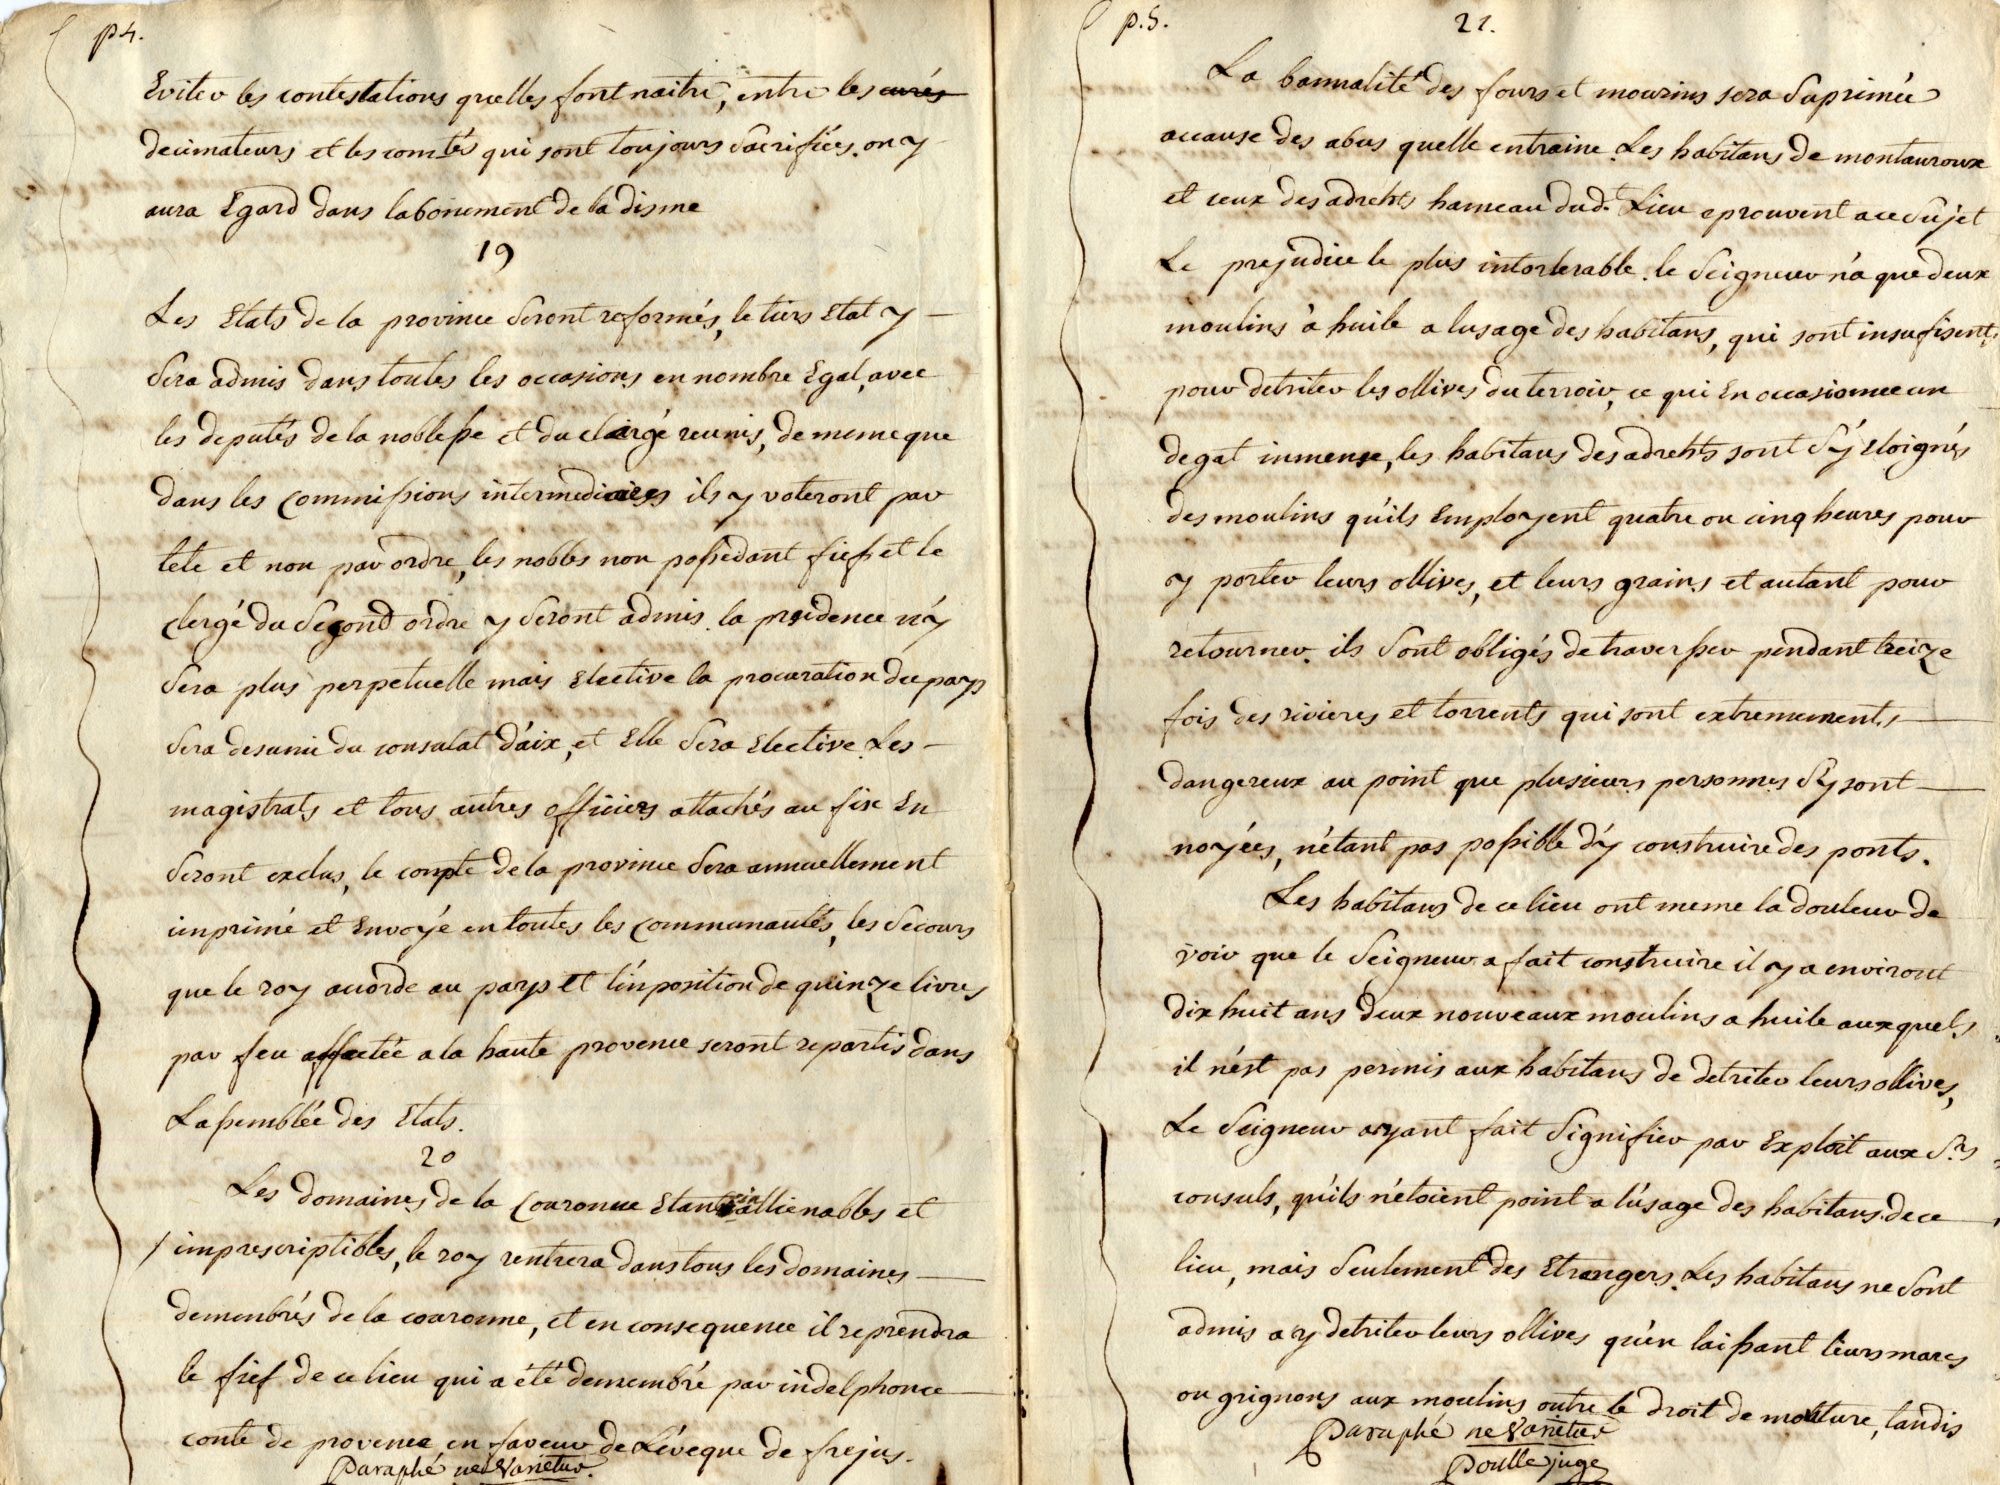 p 4.
Eviter les contestations quelles font naitre, entre les curés
decimateurs et les comtés qui sont toujours sacrifiées. on y
aura Egard dans labonement de la disme
19
Les Etats de la province seront reformés, le tiers Etat y
sera admis dans toutes les occasions en nombre Egal, avec
les deputés de la noblesse et du clergé reunis, de meme que
dans les commissions intermediaires ils y voteront par
tete et non par ordre, les nobles non possedant fiefs et le
clergé du segond ordre y seront admis. la presidence n'y
sera plus perpetuelle mais Elective la procuration du pays
sera desunie du consulat d'aix, et Elle sera Elective. Les
magistrats et tous autres officiers attachés au fisc En
seront exclus, le compte de la province sera annuellement
imprimé et Envoyé en toutes les communautés, les secours
que le roy accorde au pays et l'inposition de quinze livres
par feu affectée a la haute provence seront repartis dans
Lassemblée des Etats.
20
Les domaines de la Couronne Etant inallienables et
imprescriptibles, le roy rentrera dans tous les domaines
demenbrés de la couronne, et en consequence il reprendra
le fief de ce lieu qui a été demembré par indelphonce
conte de provence en faveur de L'éveque de frejus.
Paraphé ne varietur.
p. 5.
21.
La bannalité des fours et moulins sera suprimée
accause des abus quelle entraine. Les habitans de montauroux
et ceux des adrehts hameau dud. Lieu eprouvent a ce sujet
Le prejudice le plus intorlerable. le seigneur n'a que deux
moulins à huile a lusage des habitans, qui sont insufisent,
pour detriter les ollives du terroir, ce qui En occasionne un
degat inmense, les habitans des adrehts sont s'y Eloignés
des moulins qu'ils Employent quatre ou cinq heures pour
y porter leurs ollives, et leurs grains et autant pour
retourner. ils sont obligés de traversser pendant treize
fois des rivieres et torrents qui sont extremements
dangereux au point que plusieurs personnes s'y sont
noyées, n'étant pas possible d'y construire des ponts.
Les habitans de ce lieu ont meme la douleur de
voir que le seigneur a fait construire il y a environt
dix huit ans deux nouveaux moulins a huile auxquels
il n'est pas permis aux habitans de detriter leurs ollives,
Le seigneur ayant fait signifier par Exploit aux srs
consuls, qu'ils n'étoient point a l'usage des habitans de ce
lieu, mais seulement des Etrangers. Les habitans ne sont
admis a y detriter leurs ollives qu'en laissant leurs marcs
ou grignons aux moulins outre le droit de mouture, tandis
Paraphé ne varietur
Poulle juge